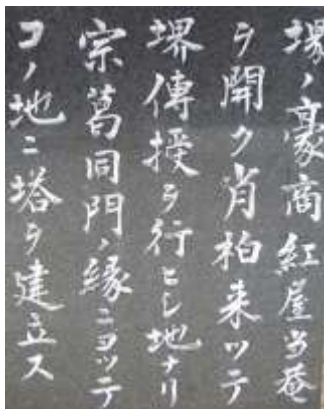 堺ノ豪商紅屋当菴
ヲ開ク肖柏来ツテ
堺傳授ヲ行ヒシ地ナリ
宗葛同門ノ縁ニヨツテ
コノ地ニ塔ヲ建立ス